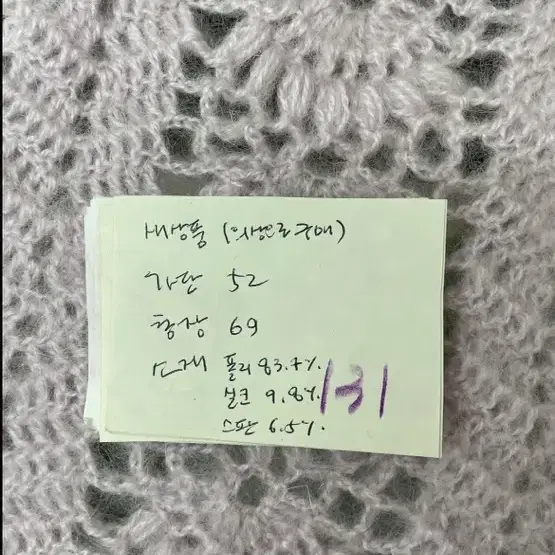 새상품 (의상용으로 구매)
가단 52
총장 69
소재 폴리 83.7%
실크 9.8%
스판 6.5%
131